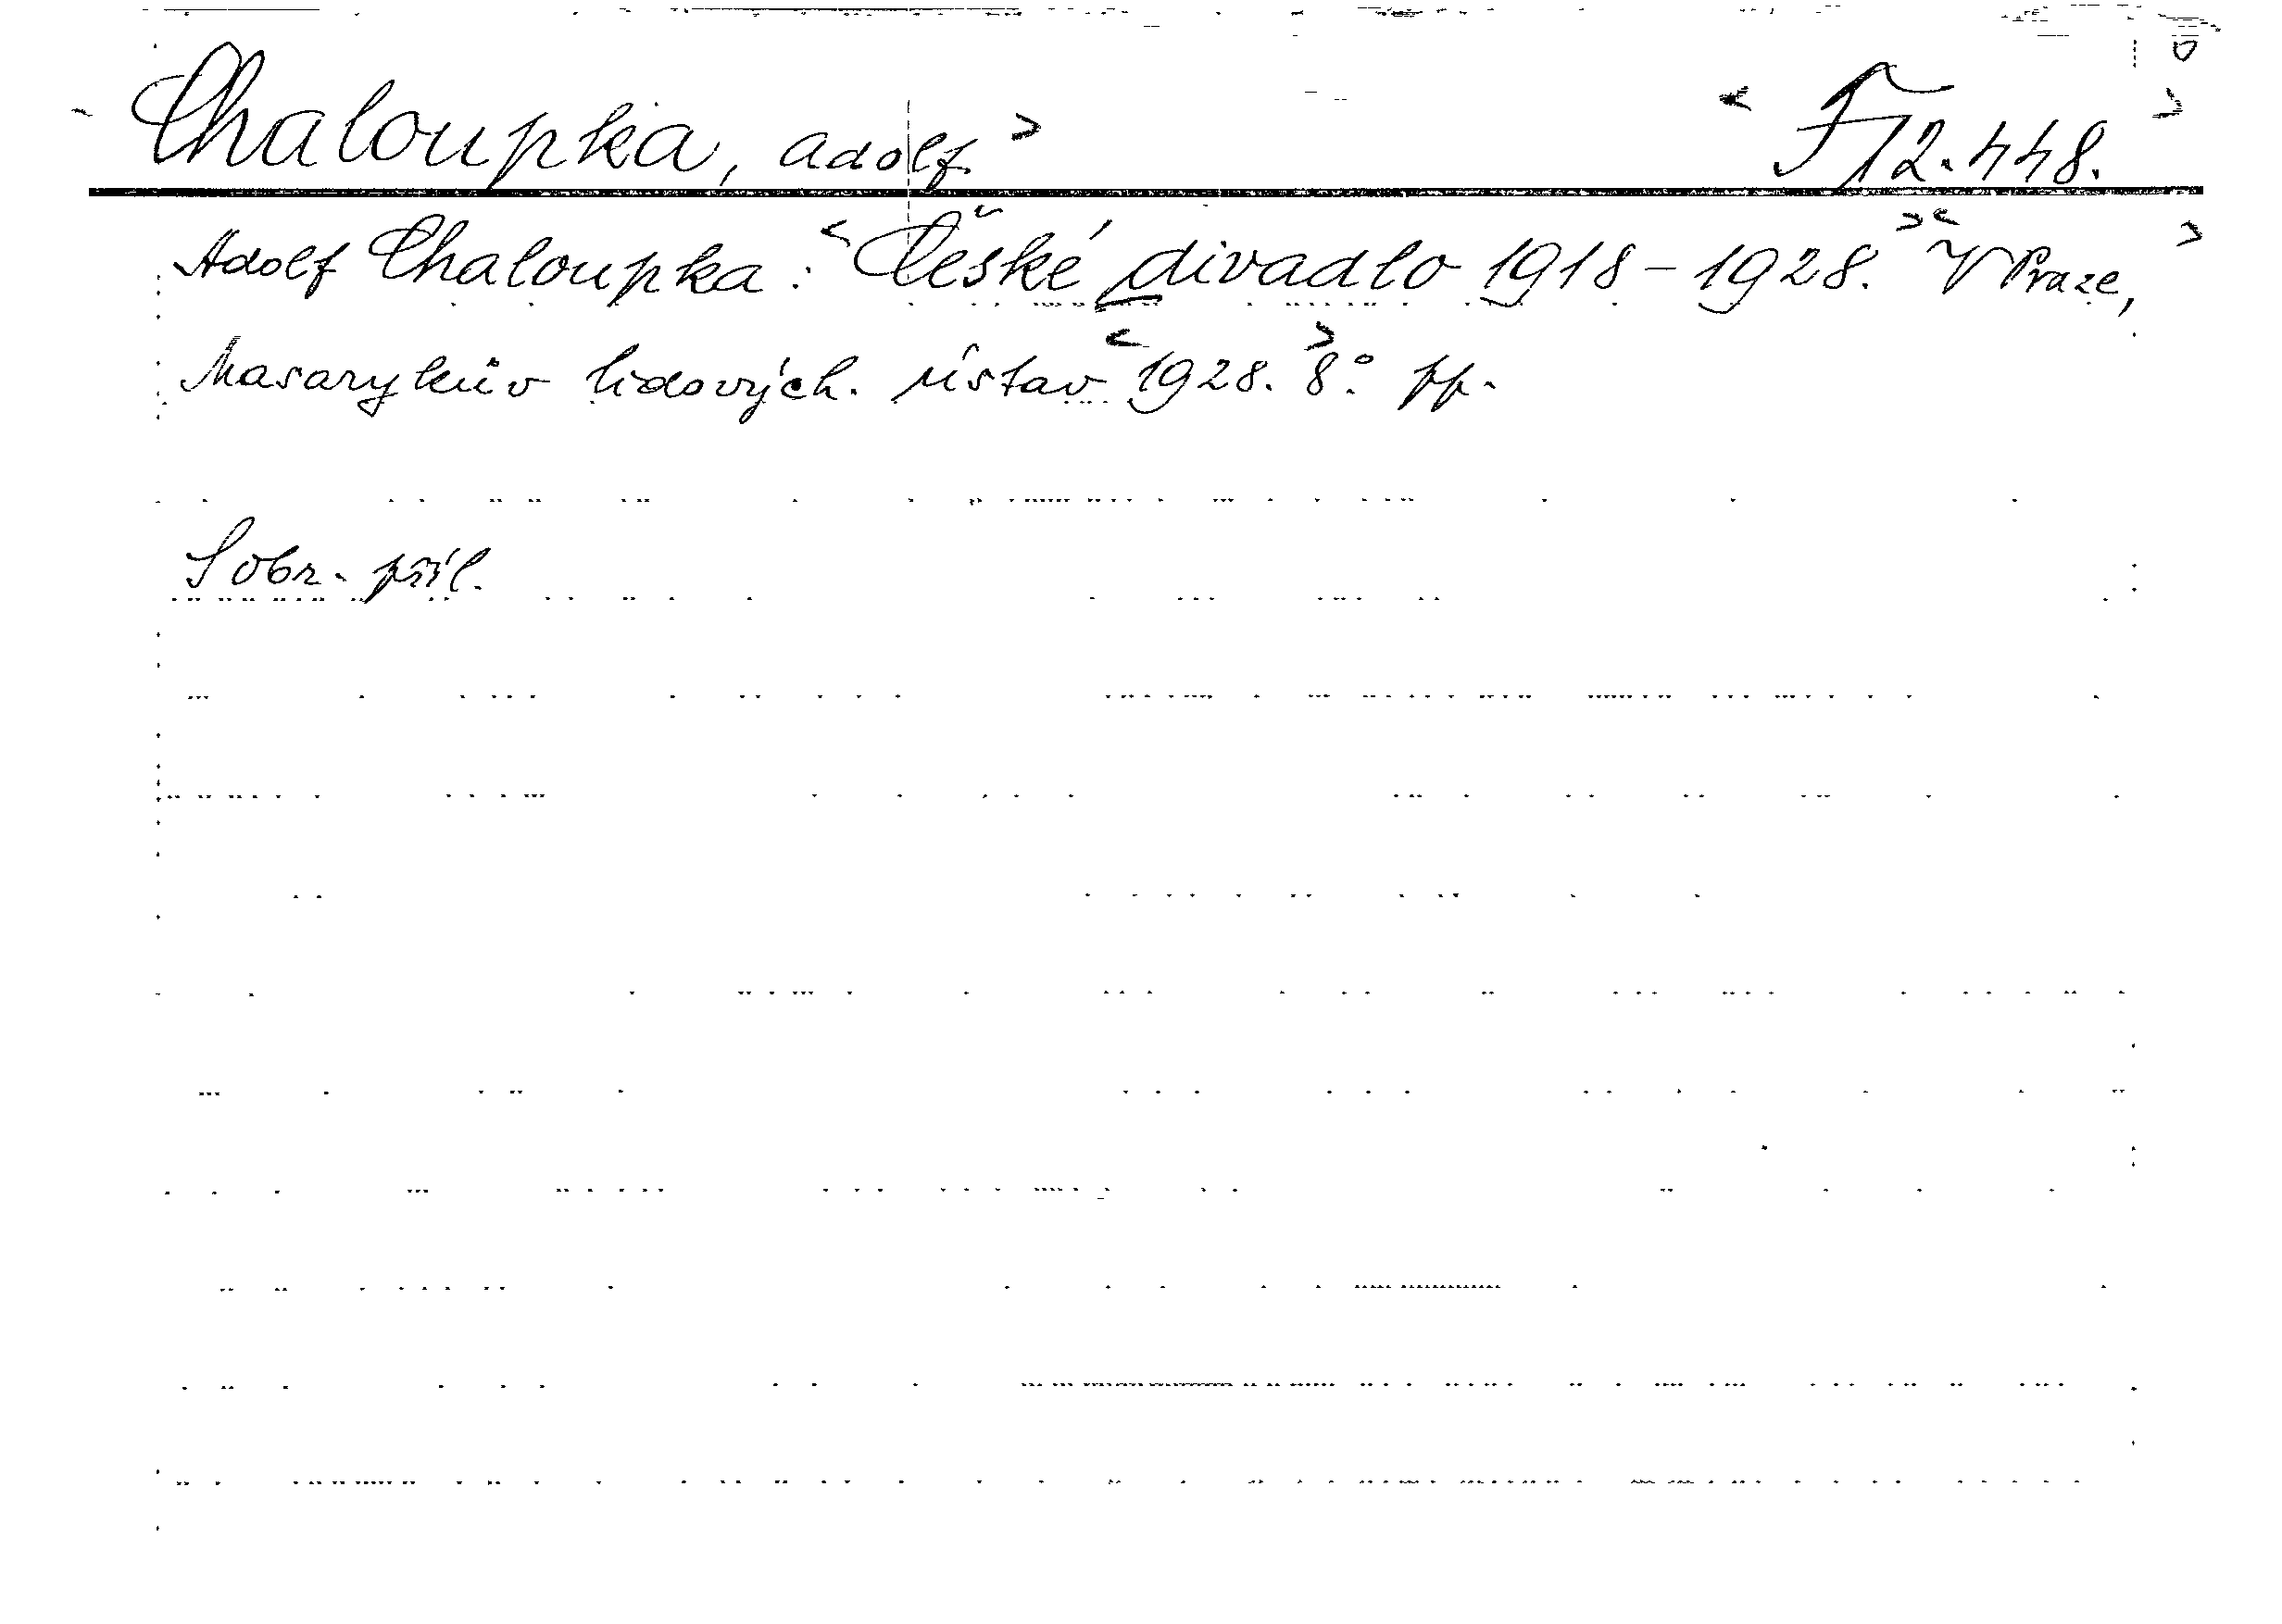 Chaloupka, Adolf. F 12.448.
Adolf Chaloupka: České divadlo 1918-1928. V Praze,
Masarykův lidových. ústav 1928. 8°. pp.
S obr. příl.